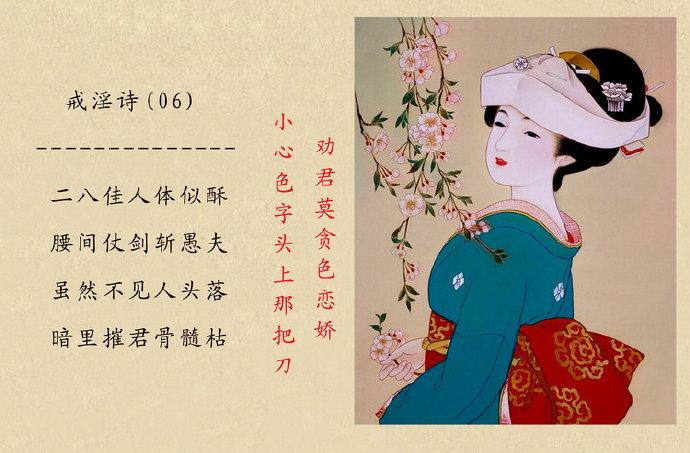 戒淫诗(06)
--------------
二八佳人体似酥
腰间仗剑斩愚夫
虽然不见人头落
暗里摧君骨髓枯
劝君莫贪色恋娇
小心色字头上那把刀